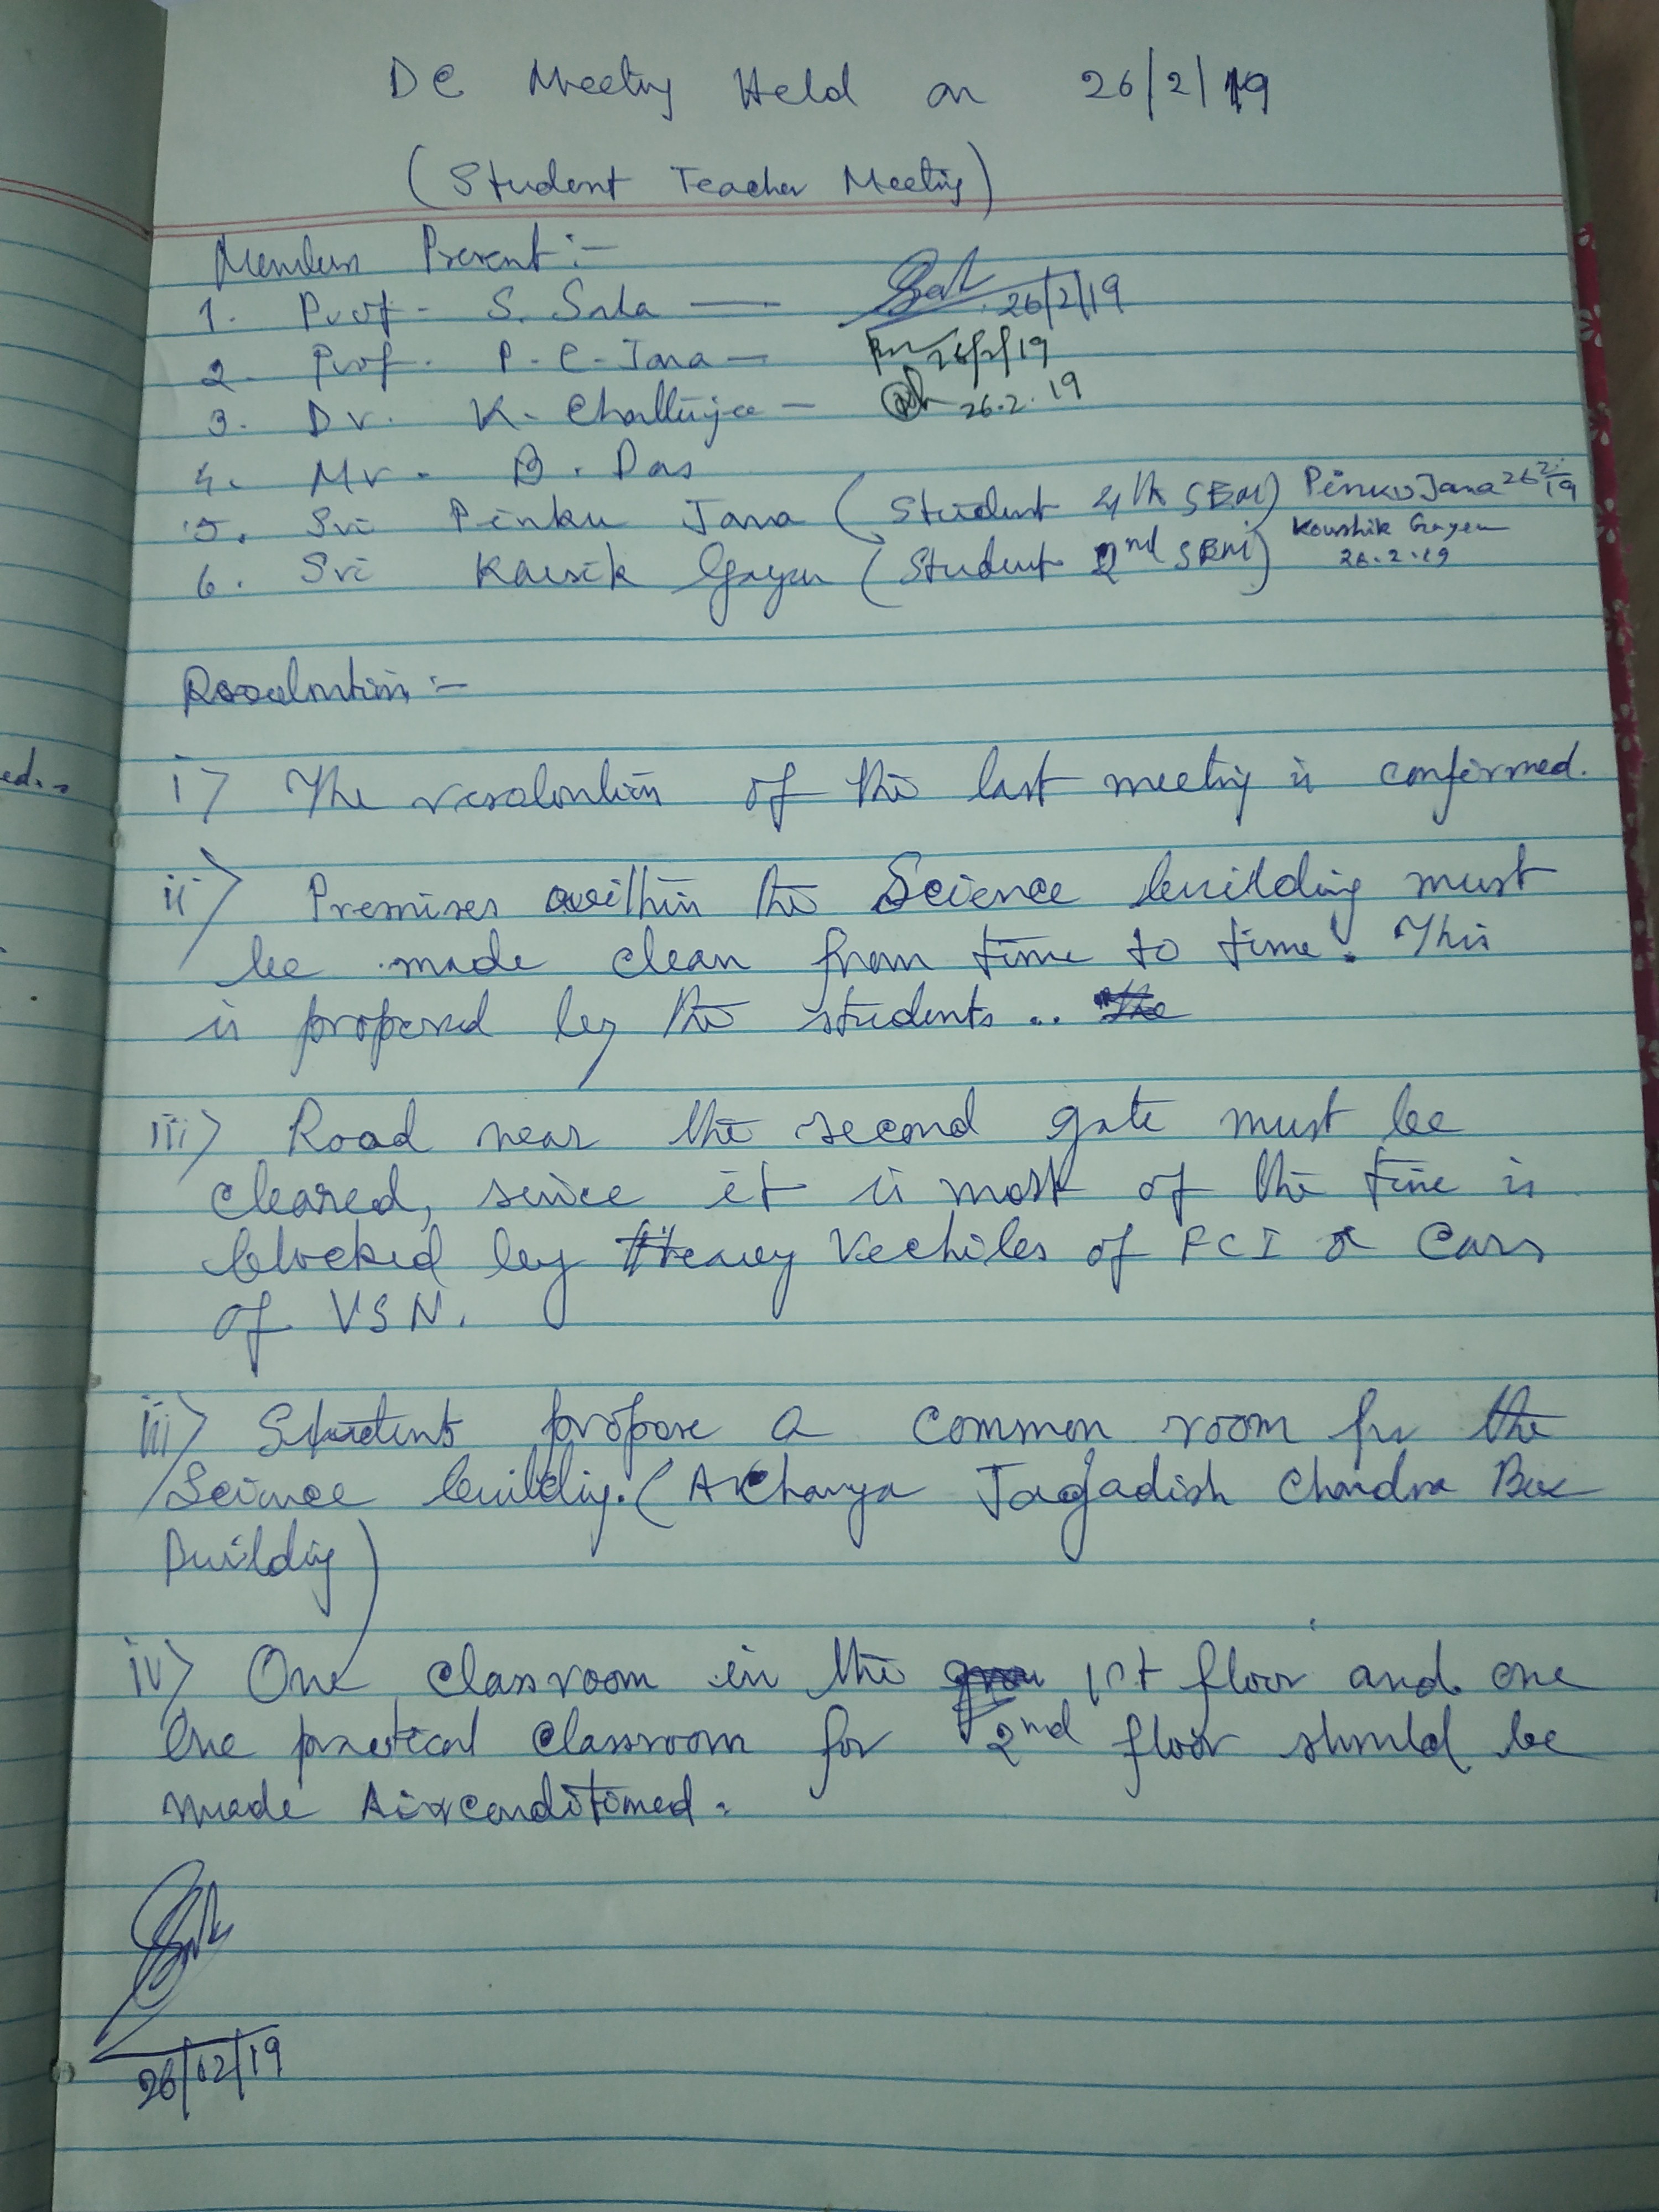 DC Meeting Held on 26/2/19
(Student Teacher Meeting)
Members Present :-
1. Prof. S. Saha — 26/2/19
2. Prof. P. C. Jana — 26/2/19
3. Dr. K. Chatterjee — 26.2.19
4. Mr. B. Das
5. Sri Pinku Jana (Student 4th SEM) Pinku Jana 26/2/19
6. Sri Kausik Gayen (Student 2nd SEM) Koushik Gayen
26.2.19
Resolution :-
i) The resolution of the last meeting is confirmed.
ii) Premises within the Science building must
be made clean from time to time. This
is proposed by the students..
iii) Road near the second gate must be
cleared, since it is most of the time is
blocked by Heavy Vechiles of FCI or Cars
of VSN.
iii) Students propose a common room for the
Science building. (Acharya Jagadish Chandra Bose
Building)
iv) One classroom in the 1st floor and one
One practical classroom for 2nd floor should be
made Airconditioned.
26/02/19
ed..